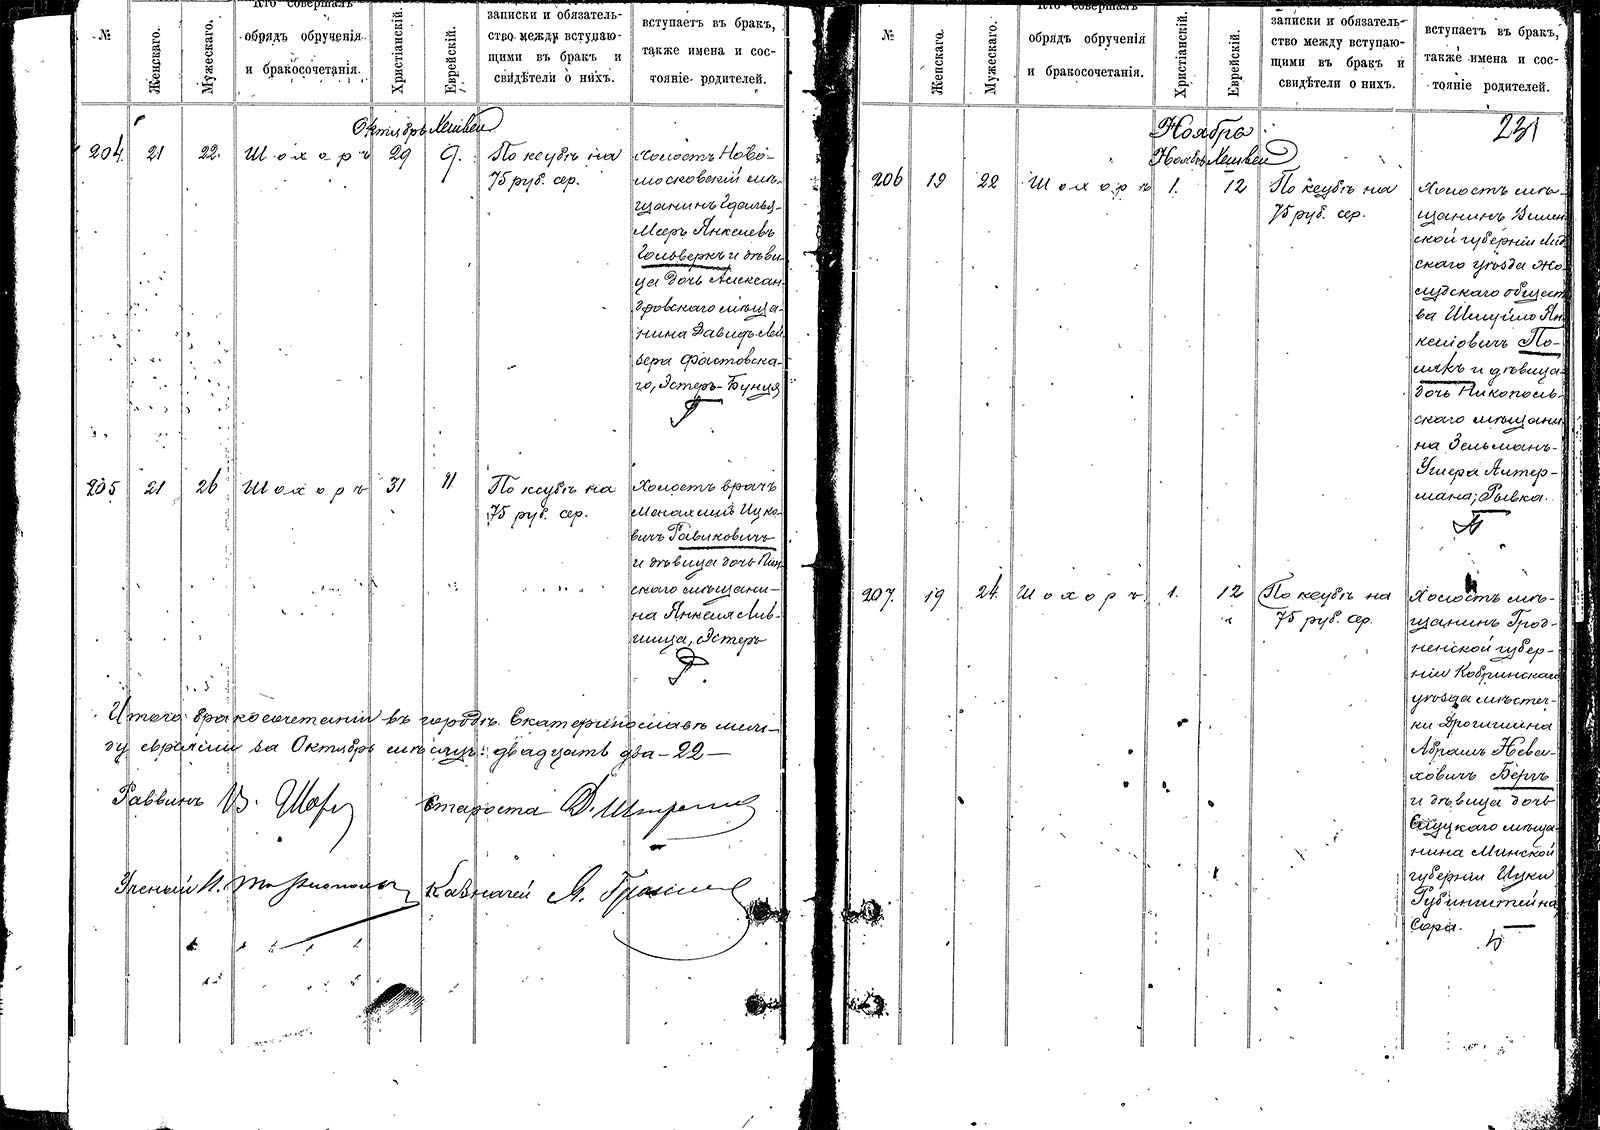 №
Женскаго.
Мужескаго.
Кто совершалъ
обрядъ обрученія
и бракосочетанія.
Христіанскій.
Еврейскій.
записки и обязатель-
ство между вступаю-
щими въ бракъ и
свидѣтели о нихъ.
вступаетъ въ бракъ,
также имена и сос-
тояніе родителей.
Октябрь Хешвен
204. 21 22. Шохоръ 29 9.
По ксубѣ на
75 руб. сер.
Холостъ Ново-
московскій мѣ-
щанинъ Гдалья-
Мееръ Янкелевъ
Гольберкъ и дѣви-
ца дочь Алексан-
дровскаго мѣща-
нина Давидъ Лей-
зера Фастовска-
го, Эстеръ-Бунця
205 21 26 Шохоръ 31 11
По ксубѣ на
75 руб. сер.
Холостъ врачъ
Ицко-
вичъ Равиковичъ
и дѣвица дочь Пин-
скаго мѣщани-
на Янкеля Лив-
шица, Эстеръ
Итого бракосочетаній въ городѣ Екатеринославѣ меж-
ду евреями за Октябрь мѣсяцъ: двадцать два - 22 -
Раввинъ В. Шохоръ Староста Д.
Ученый И. Казначей А.
№
Женскаго.
Мужескаго.
Кто совершалъ
обрядъ обрученія
и бракосочетанія.
Христіанскій.
Еврейскій.
записки и обязатель-
ство между вступаю-
щими въ бракъ и
свидѣтели о нихъ.
вступаетъ въ бракъ,
также имена и сос-
тояніе родителей.
231
Ноябрь.
Ноябрь Хешвен
206 19 22 Шохоръ 1. 12
По ксубѣ на
75 руб. сер.
Холостъ мѣ-
щанинъ Вилен-
ской губерніи Лид-
скаго уѣзда Жо-
лудскаго общест-
ва Шмуйло Ян-
келіовичъ По-
лякъ и дѣвица
дочь Никополь-
скаго мѣщани-
на Зельманъ-
Ушера Алтер-
мана, Рывка.
207. 19 24. Шохоръ 1. 12
По ксубѣ на
75 руб. сер.
Холостъ мѣ-
щанинъ Грод-
ненской губер-
ніи Кобринскаго
уѣзда мѣстеч-
ки Дрогичина
Абрамъ
ховичъ Беръ
и дѣвица дочь
Слуцкаго мѣща-
нина Минской
губерніи Ицки
Рубинштейна
Сора.